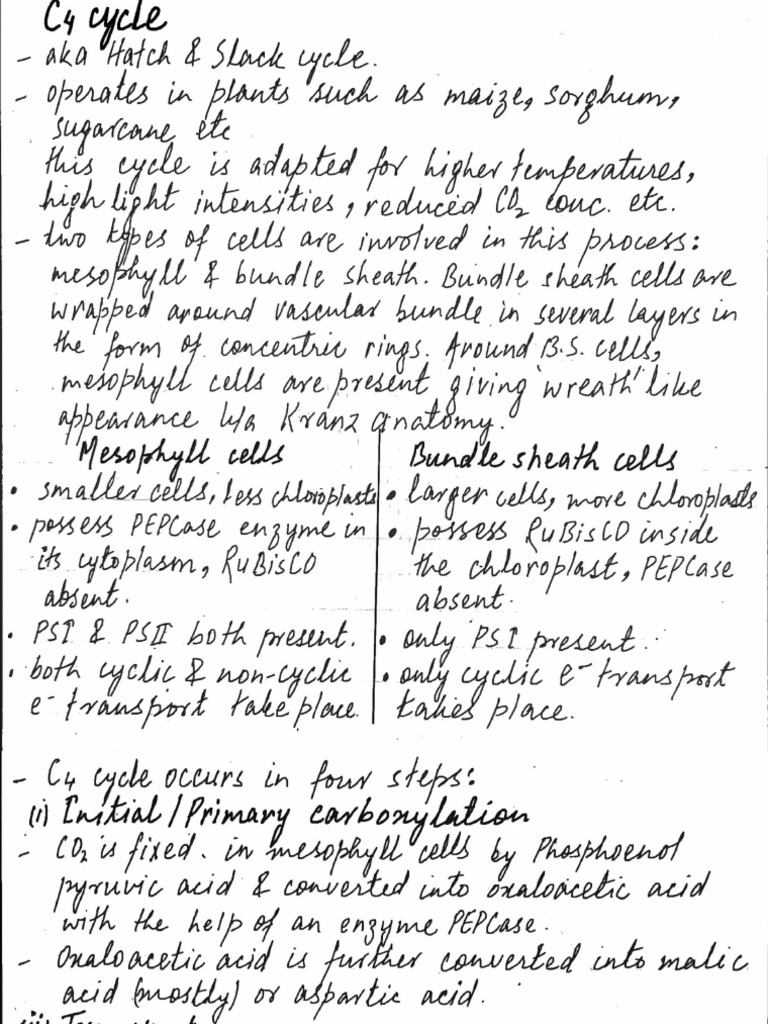 C4 cycle
- aka Hatch & Slack cycle.
- operates in plants such as maize, sorghum,
sugarcane etc
this cycle is adapted for higher temperatures,
high light intensities, reduced CO2 conc. etc.
- two types of cells are involved in this process:
mesophyll & bundle sheath. Bundle sheath cells are
wrapped around vascular bundle in several layers in
the form of concentric rings. Around B.S. cells,
mesophyll cells are present giving 'wreath' like
appearance k/a Kranz anatomy.
Mesophyll cells
• smaller cells, less chloroplasts
• possess PEPCase enzyme in
its cytoplasm, RuBisCO
absent.
• PSI & PSII both present.
• both cyclic & non-cyclic
e- transport take place.
Bundle sheath cells
• larger cells, more chloroplasts
• possess RuBisCO inside
the chloroplast, PEPCase
absent.
• only PSI present.
• only cyclic e- transport
takes place.
- C4 cycle occurs in four steps:
(i) Initial/Primary carboxylation
- CO2 is fixed. in mesophyll cells by Phosphoenol
pyruvic acid & converted into oxaloacetic acid
with the help of an enzyme PEPCase.
- Oxaloacetic acid is further converted into malic
acid (mostly) or aspartic acid.